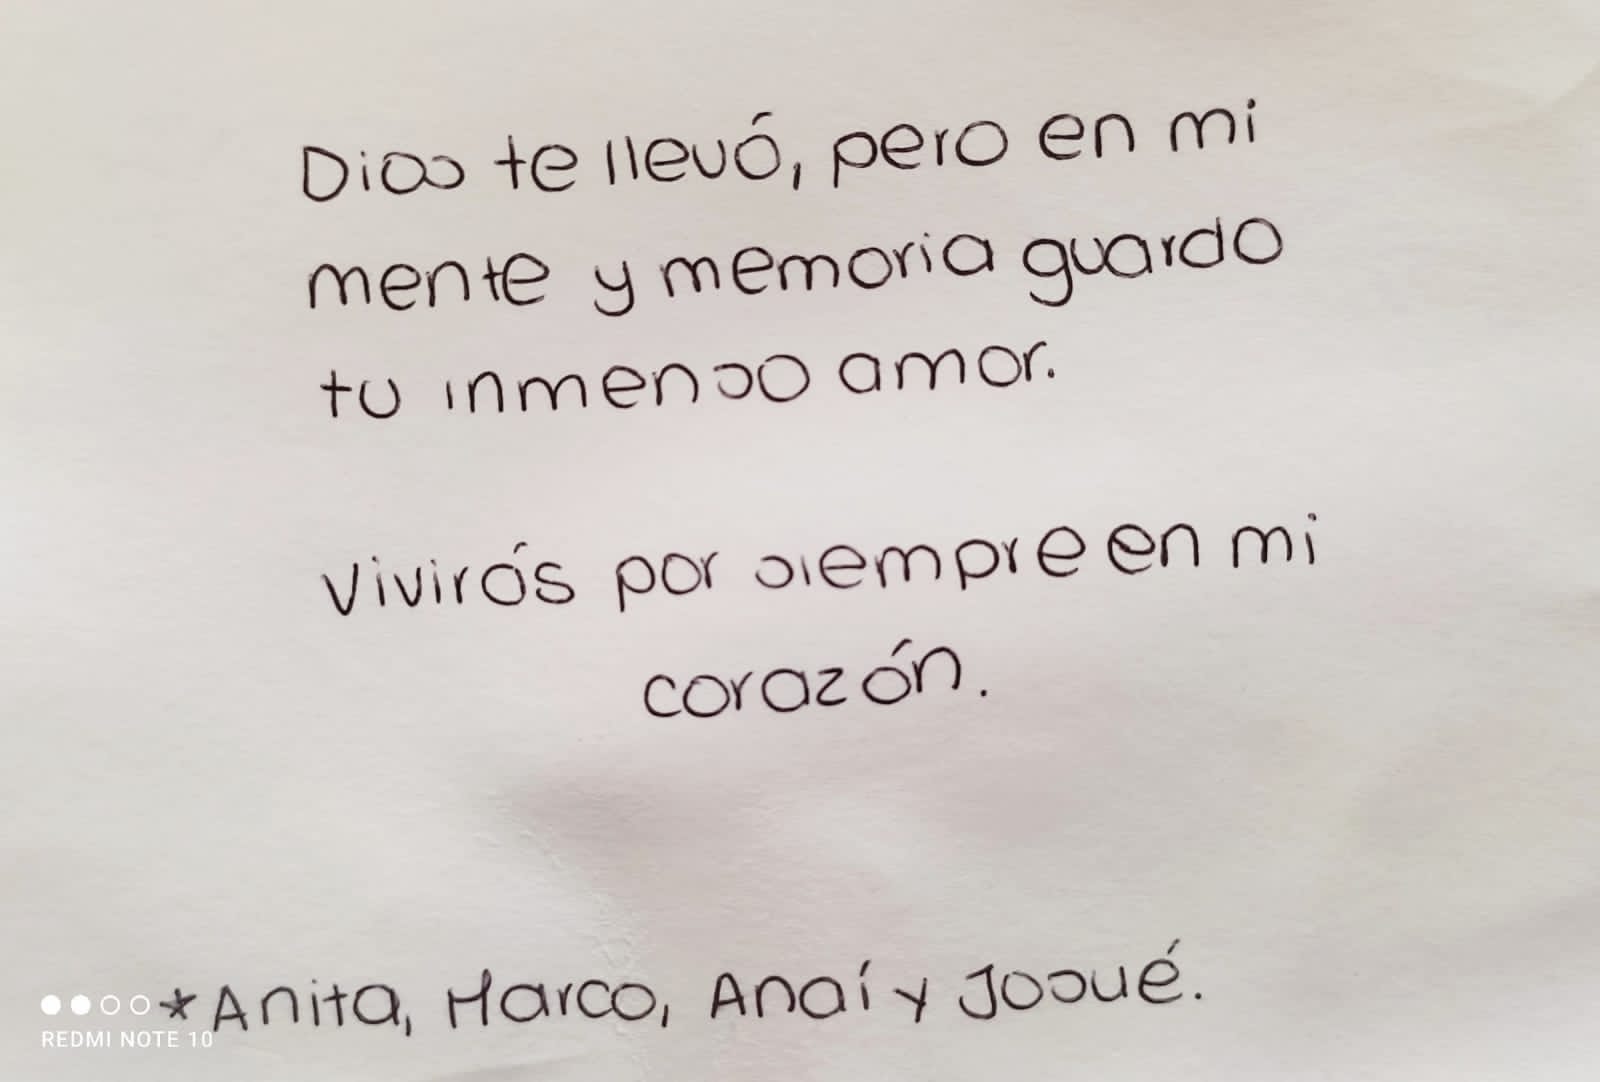 Dios te llevó, pero en mi
mente y memoria guardo
tu inmenso amor.
Vivirás por siempre en mi
corazón.
*Anita, Marco, Anaí y Josué.
REDMI NOTE 10